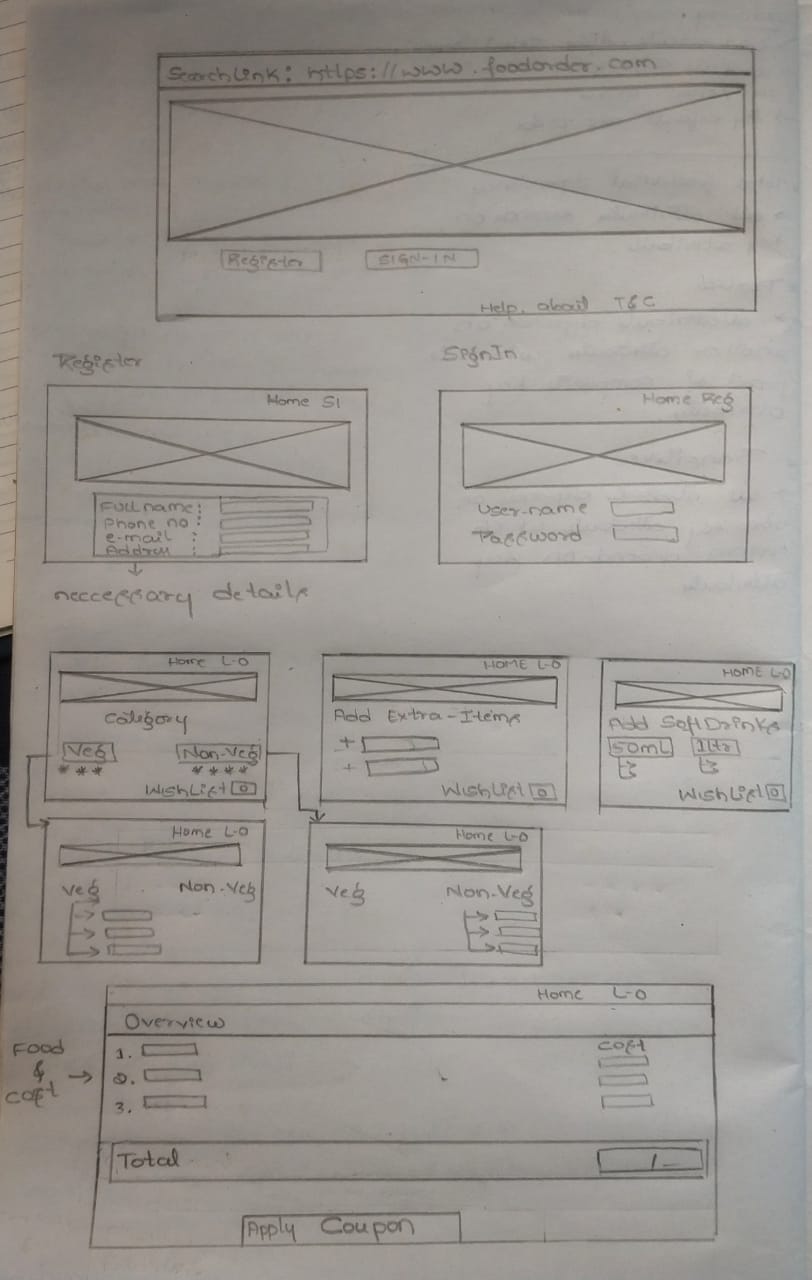 SearchLink: https://www.foodorder.com
Register SIGN-IN
Help, about T&C
Register
SignIn
Home SI
Home Reg
Full name:
Phone no :
e-mail :
Address :
User-name
Password
neccessary details
Home L-O
Category
Veg Non-Veg
* * * * * * *
WishList
HOME L-O
Add Extra-Items
+
+
WishList
HOME L-O
Add SoftDrinks
50ML 1ltr
WishList
Home L-O
Veg Non-Veg
Home L-O
Veg Non-Veg
Home L-O
Overview
Food
&
Cost
Cost
1.
2.
3.
Total /_
Apply Coupon